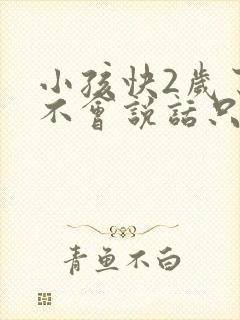 小孩快2歲
不會說話只
青鱼不白